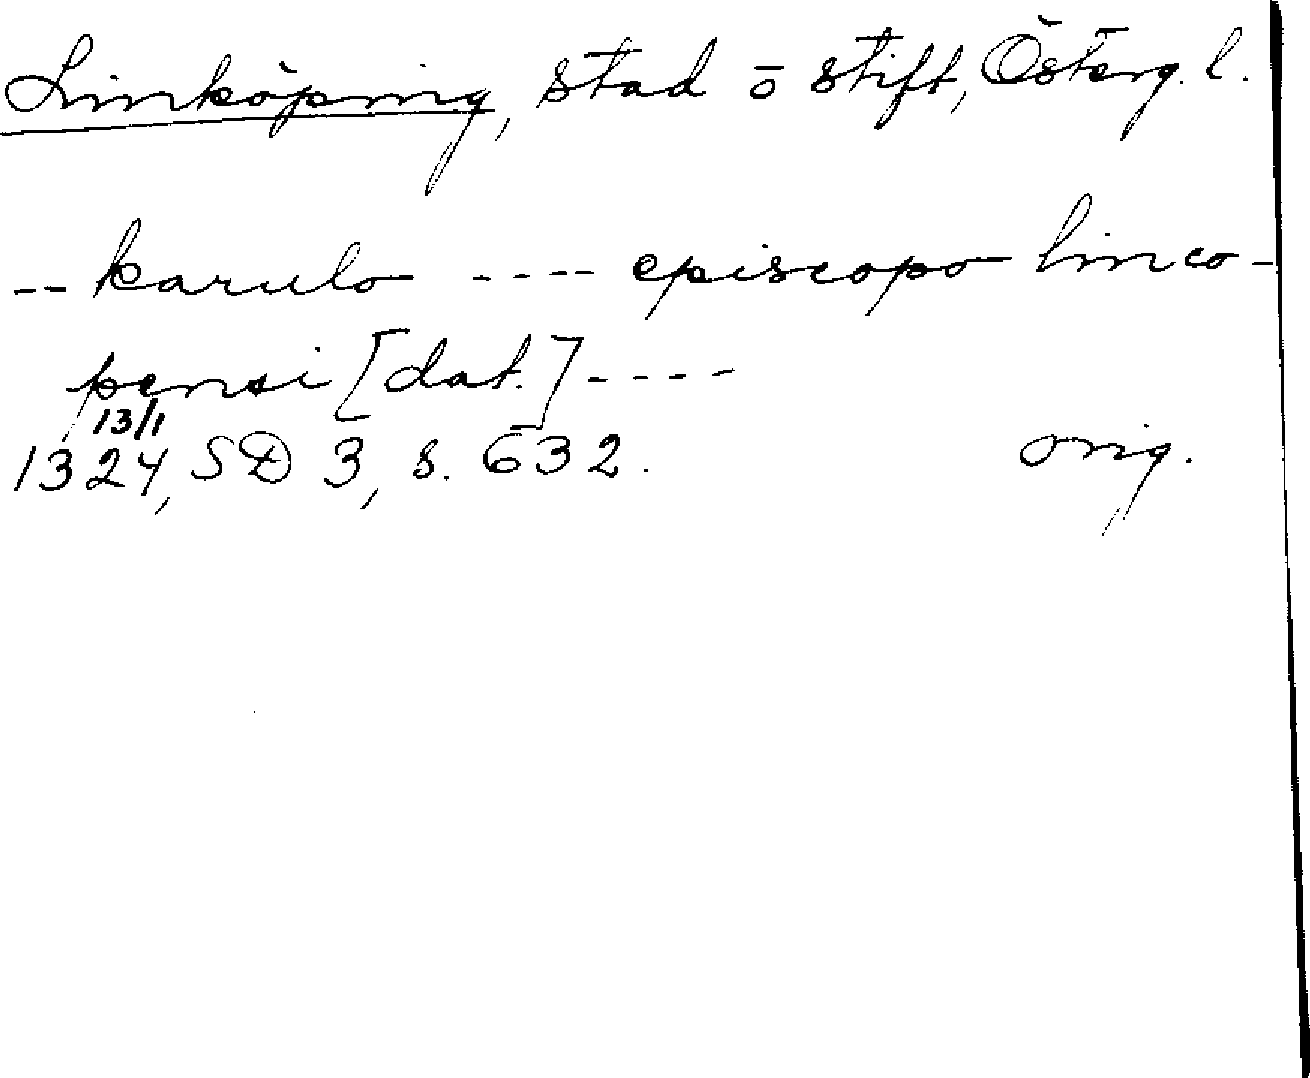 Linköping, stad o stift, Österg. l.
-- karulo ---- episcopo linco-
pensi [dat.] ----
13/1
1324, SD 3, s. 632.
orig.